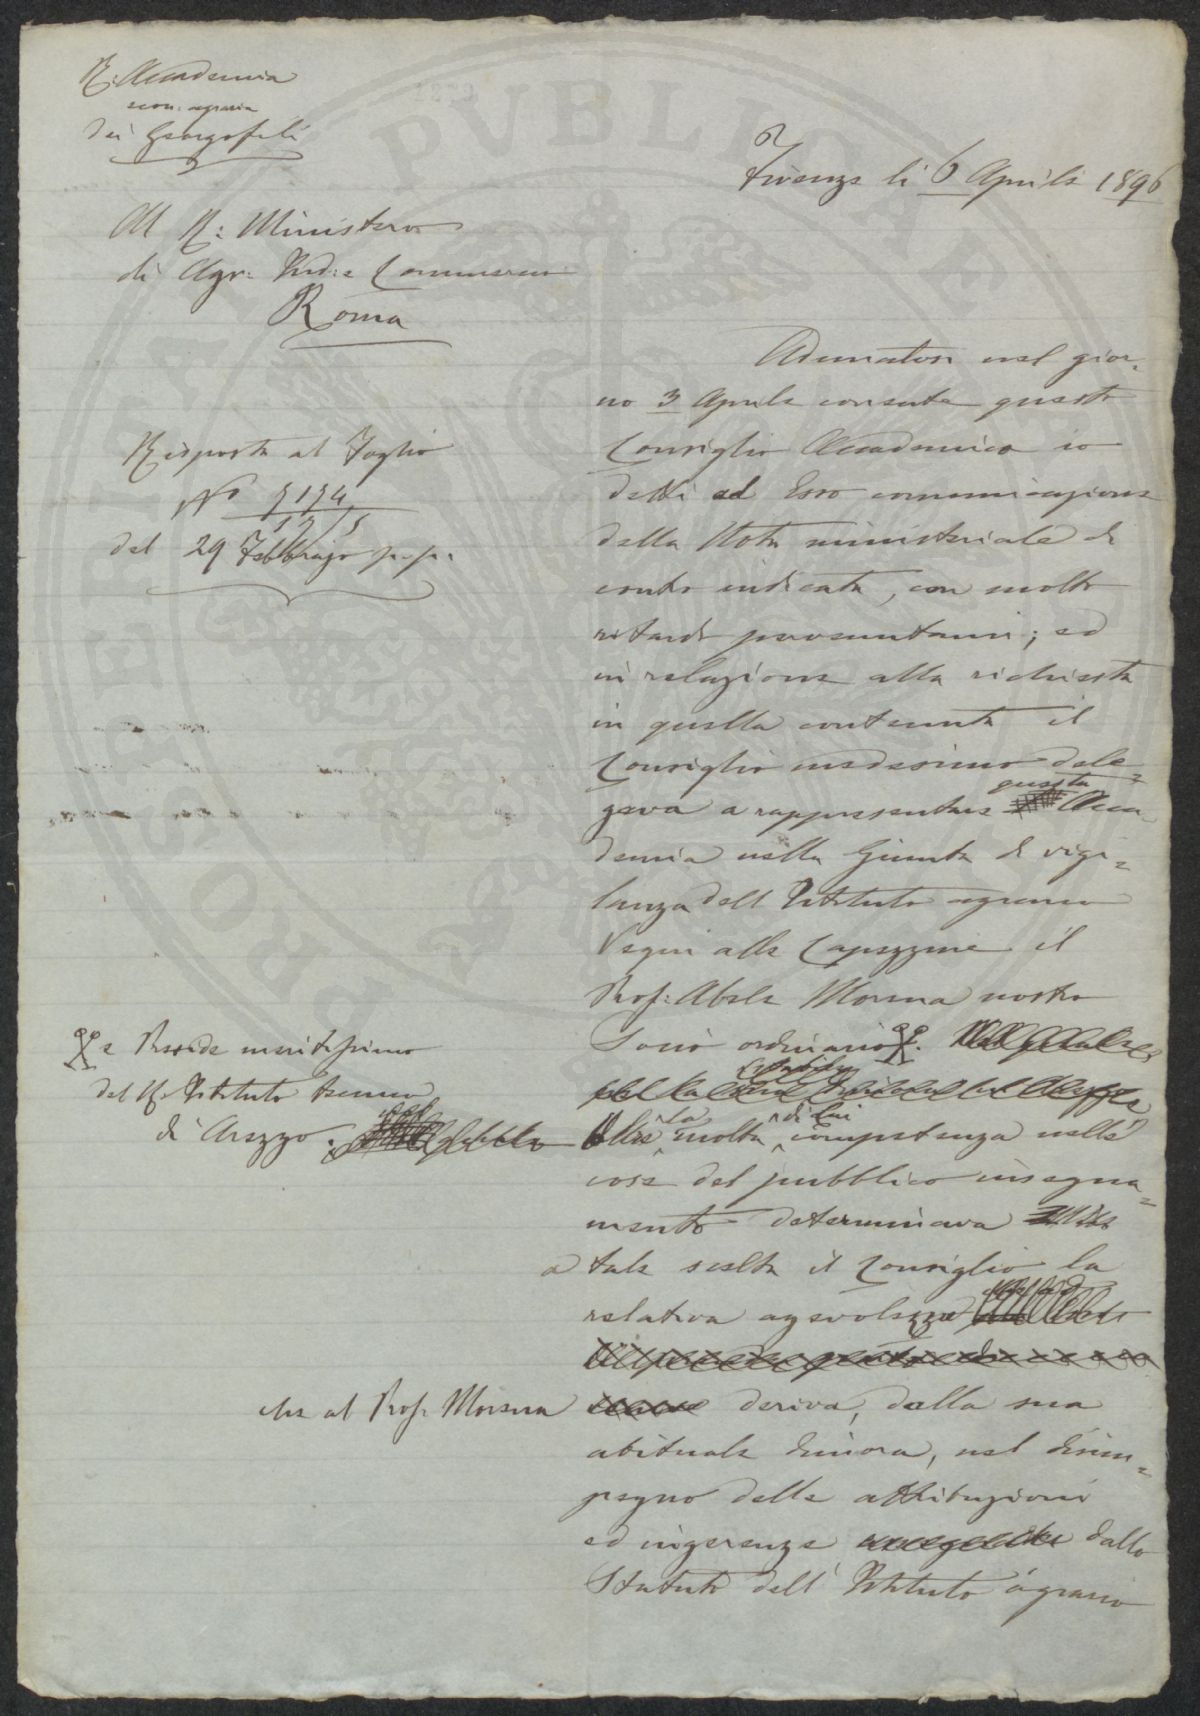 R. Accademia
econ: agraria
dei Georgofili
Firenze li 6 Aprile 1896
Al R: Ministero
di Agr: Ind: e Commercio
Roma
Adunatosi nel gior-
no 3 Aprile corrente questo
Consiglio Accademico io
detti ad Esso comunicazione
della Nota ministeriale di
contro indicata, con molto
ritardo pervenutami; ed
in relazione alla richiesta
in quella contenuta il
Consiglio medesimo dele-
gava a rappresentare questa Acca-
demia nella Giunta di vigi-
lanza dell'Istituto agrario
Vegni alle Capezzine il
Prof: Abele Morena nostro
Socio ordinario
Risposta al Foglio
No 5154
del 29 Febbraio p.p.
e Preside meritissimo
del R. Istituto tecnico
di Arezzo.
Oltre la molta di lui competenza nelle
cose del pubblico insegna-
mento determinava
a tale scelta il Consiglio la
relativa agevolezza
che al Prof. Morena deriva, dalla sua
abituale dimora, nel disim-
pegno delle attribuzioni
ed ingerenze dallo
Statuto dell'Istituto agrario